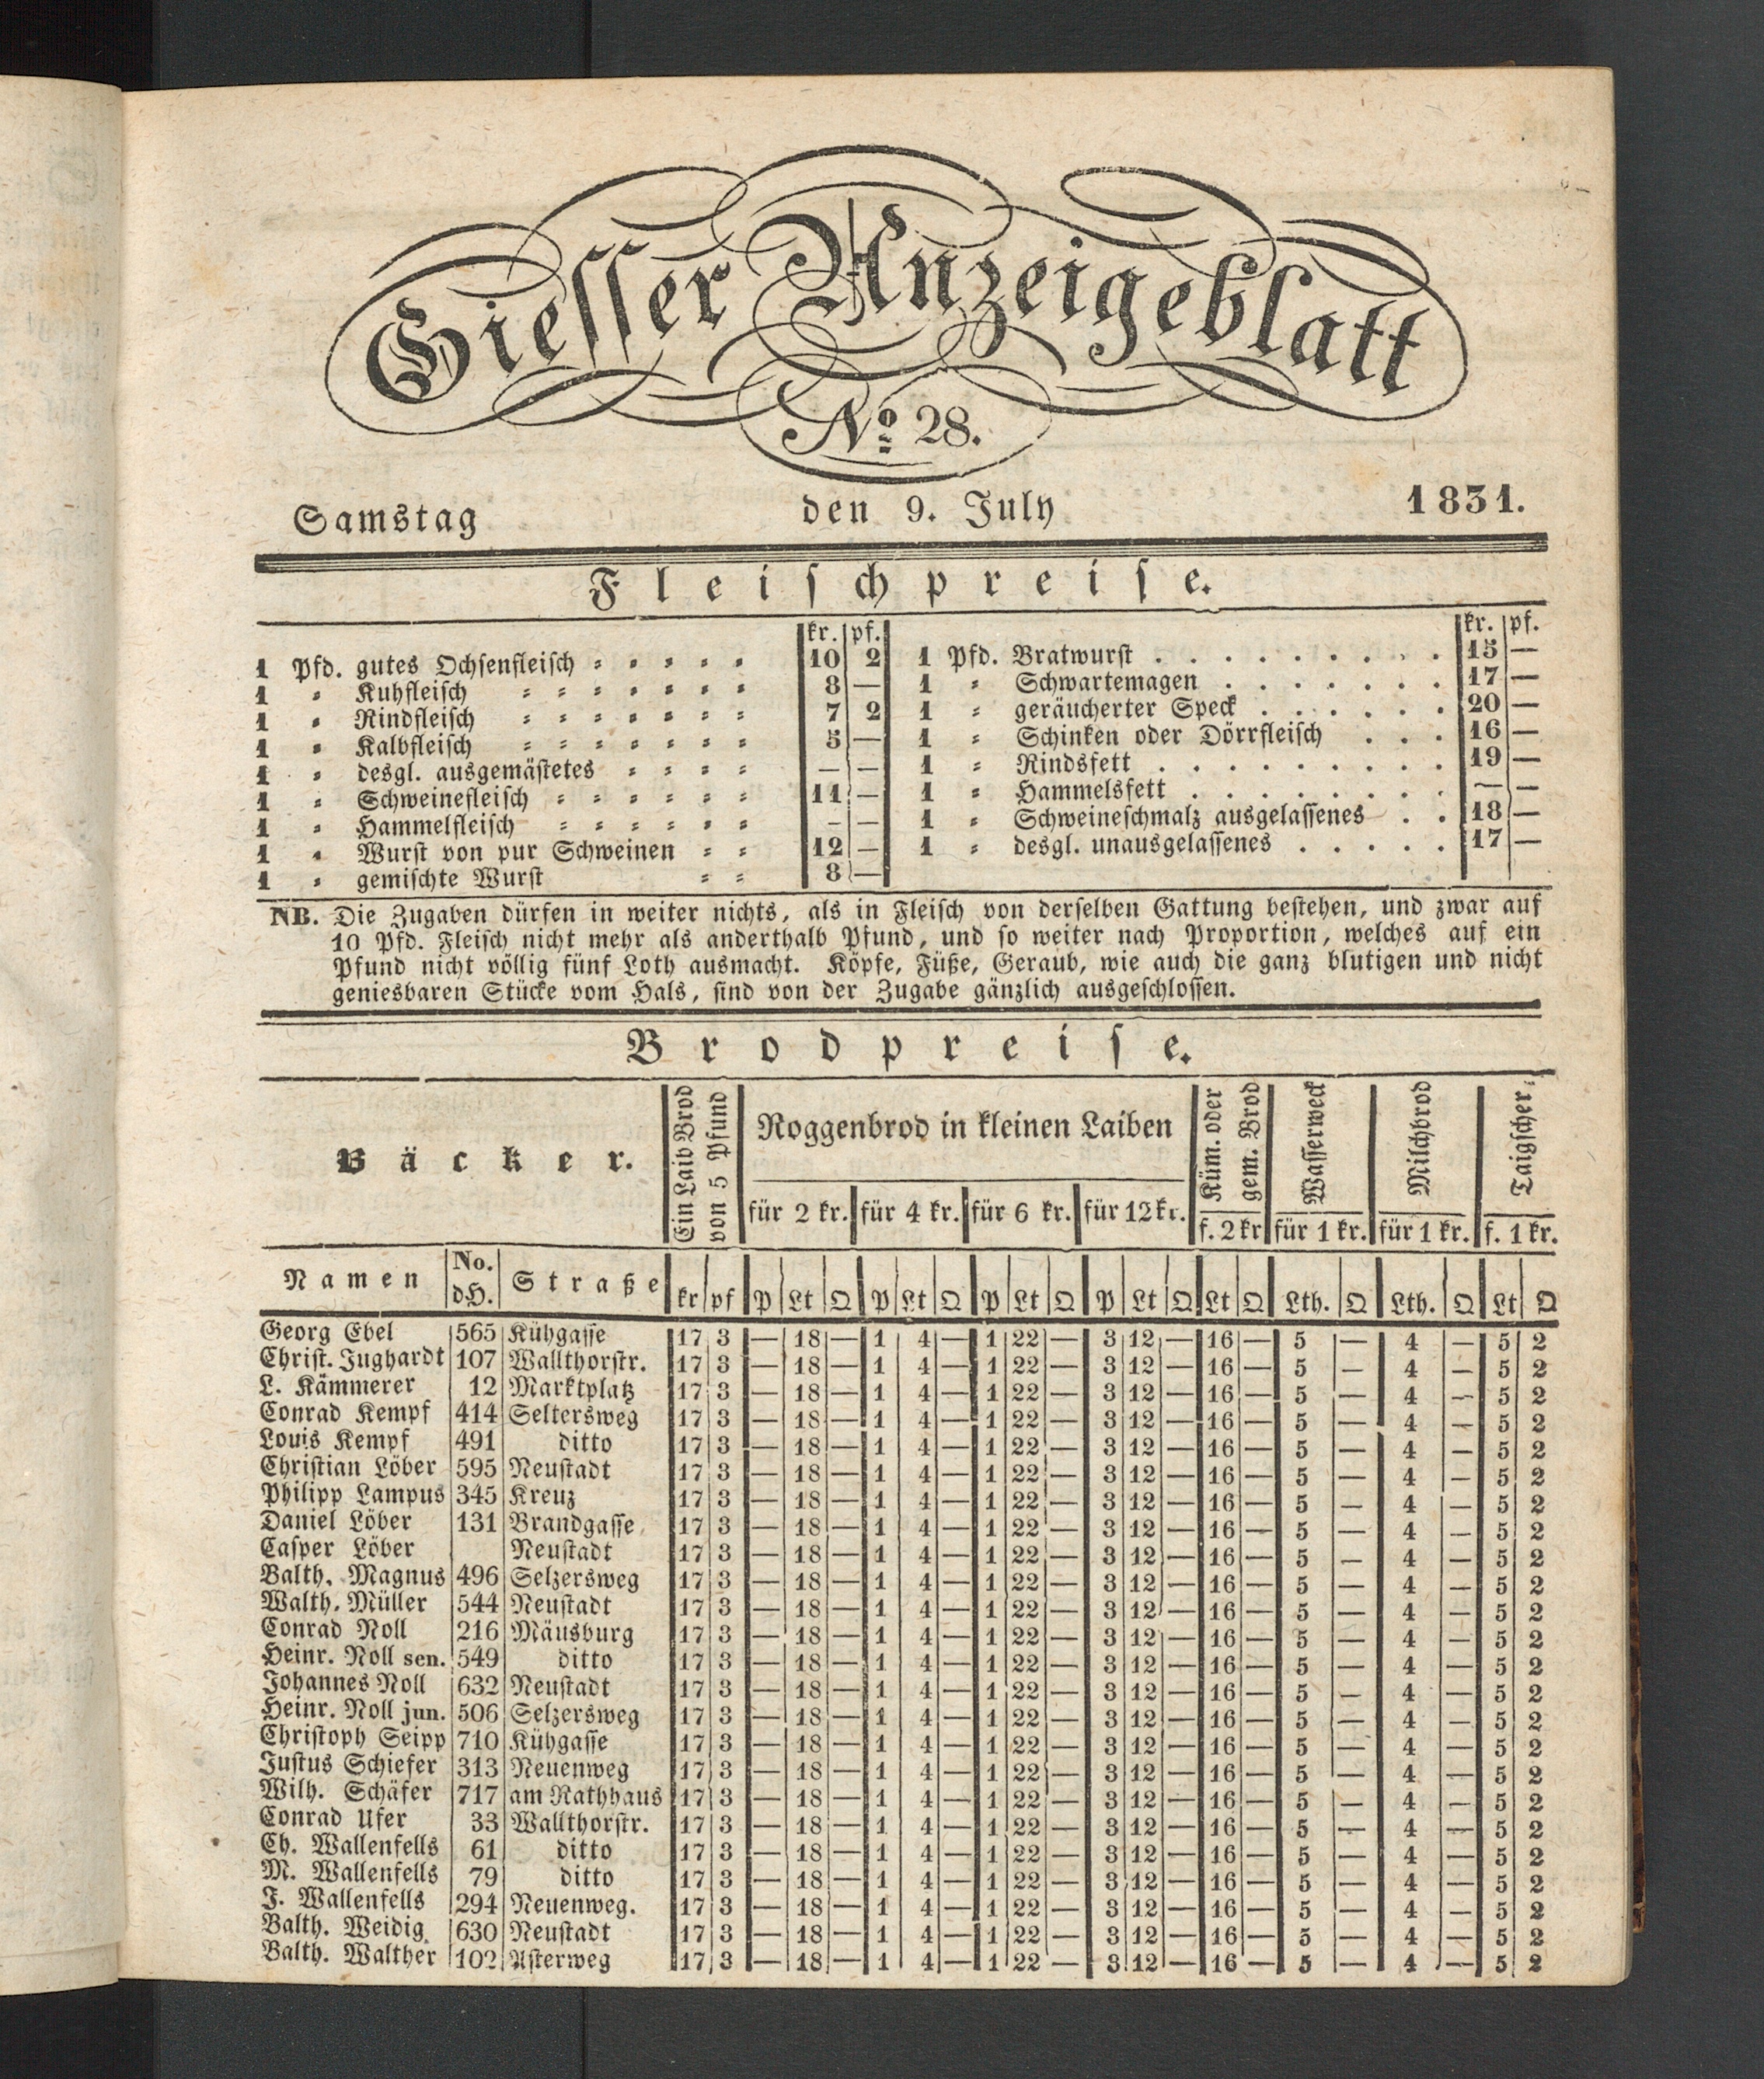 Giesser Anzeigeblatt
No. 28.
Samstag den 9. July 1831.
Fleischpreise.
kr. pf. kr. pf.
1 Pfd. gutes Ochsenfleisch 10 2 1 Pfd. Bratwurst 15 —
1 " Kuhfleisch 8 — 1 " Schwartemagen 17 —
1 " Rindfleisch 7 2 1 " geräucherter Speck 20 —
1 " Kalbfleisch 5 — 1 " Schinken oder Dörrfleisch 16 —
1 " desgl. ausgemästetes — — 1 " Rindsfett 19 —
1 " Schweinefleisch 11 — 1 " Hammelsfett — —
1 " Hammelfleisch — — 1 " Schweineschmalz ausgelassenes 18 —
1 " Wurst von pur Schweinen 12 — 1 " desgl. unausgelassenes 17 —
1 " gemischte Wurst 8 —
NB. Die Zugaben dürfen in weiter nichts, als in Fleisch von derselben Gattung bestehen, und zwar auf
10 Pfd. Fleisch nicht mehr als anderthalb Pfund, und so weiter nach Proportion, welches auf ein
Pfund nicht völlig fünf Loth ausmacht. Köpfe, Füße, Geraub, wie auch die ganz blutigen und nicht
geniesbaren Stücke vom Hals, sind von der Zugabe gänzlich ausgeschlossen.
Brodpreise.
Bäcker.
Ein Laib Brod
von 5 Pfund
Roggenbrod in kleinen Laiben
für 2 kr. für 4 kr. für 6 kr. für 12 kr.
Küm. oder
gem. Brod
f. 2 kr
Wasserweck
für 1 kr.
Milchbrod
für 1 kr.
Taigscher-
f. 1 kr.
Namen No. dH. Straße kr pf P Lt Q P Lt Q P Lt Q P Lt Q Lt Q Lth. Q Lth. Q Lt Q
Georg Ebel 565 Kühgasse 17 3 — 18 — 1 4 — 1 22 — 3 12 — 16 — 5 — 4 — 5 2
Christ. Jughardt 107 Wallthorstr. 17 3 — 18 — 1 4 — 1 22 — 3 12 — 16 — 5 — 4 — 5 2
L. Kämmerer 12 Marktplatz 17 3 — 18 — 1 4 — 1 22 — 3 12 — 16 — 5 — 4 — 5 2
Conrad Kempf 414 Seltersweg 17 3 — 18 — 1 4 — 1 22 — 3 12 — 16 — 5 — 4 — 5 2
Louis Kempf 491 ditto 17 3 — 18 — 1 4 — 1 22 — 3 12 — 16 — 5 — 4 — 5 2
Christian Löber 595 Neustadt 17 3 — 18 — 1 4 — 1 22 — 3 12 — 16 — 5 — 4 — 5 2
Philipp Lampus 345 Kreuz 17 3 — 18 — 1 4 — 1 22 — 3 12 — 16 — 5 — 4 — 5 2
Daniel Löber 131 Brandgasse 17 3 — 18 — 1 4 — 1 22 — 3 12 — 16 — 5 — 4 — 5 2
Casper Löber Neustadt 17 3 — 18 — 1 4 — 1 22 — 3 12 — 16 — 5 — 4 — 5 2
Balth. Magnus 496 Selzersweg 17 3 — 18 — 1 4 — 1 22 — 3 12 — 16 — 5 — 4 — 5 2
Walth. Müller 544 Neustadt 17 3 — 18 — 1 4 — 1 22 — 3 12 — 16 — 5 — 4 — 5 2
Conrad Noll 216 Mäusburg 17 3 — 18 — 1 4 — 1 22 — 3 12 — 16 — 5 — 4 — 5 2
Heinr. Noll sen. 549 ditto 17 3 — 18 — 1 4 — 1 22 — 3 12 — 16 — 5 — 4 — 5 2
Johannes Noll 632 Neustadt 17 3 — 18 — 1 4 — 1 22 — 3 12 — 16 — 5 — 4 — 5 2
Heinr. Noll jun. 506 Selzersweg 17 3 — 18 — 1 4 — 1 22 — 3 12 — 16 — 5 — 4 — 5 2
Christoph Seipp 710 Kühgasse 17 3 — 18 — 1 4 — 1 22 — 3 12 — 16 — 5 — 4 — 5 2
Justus Schiefer 313 Neuenweg 17 3 — 18 — 1 4 — 1 22 — 3 12 — 16 — 5 — 4 — 5 2
Wilh. Schäfer 717 am Rathhaus 17 3 — 18 — 1 4 — 1 22 — 3 12 — 16 — 5 — 4 — 5 2
Conrad Ufer 33 Wallthorstr. 17 3 — 18 — 1 4 — 1 22 — 3 12 — 16 — 5 — 4 — 5 2
Ch. Wallenfells 61 ditto 17 3 — 18 — 1 4 — 1 22 — 3 12 — 16 — 5 — 4 — 5 2
M. Wallenfells 79 ditto 17 3 — 18 — 1 4 — 1 22 — 3 12 — 16 — 5 — 4 — 5 2
J. Wallenfells 294 Neuenweg. 17 3 — 18 — 1 4 — 1 22 — 3 12 — 16 — 5 — 4 — 5 2
Balth. Weidig 630 Neustadt 17 3 — 18 — 1 4 — 1 22 — 3 12 — 16 — 5 — 4 — 5 2
Balth. Walther 102 Asterweg 17 3 — 18 — 1 4 — 1 22 — 3 12 — 16 — 5 — 4 — 5 2